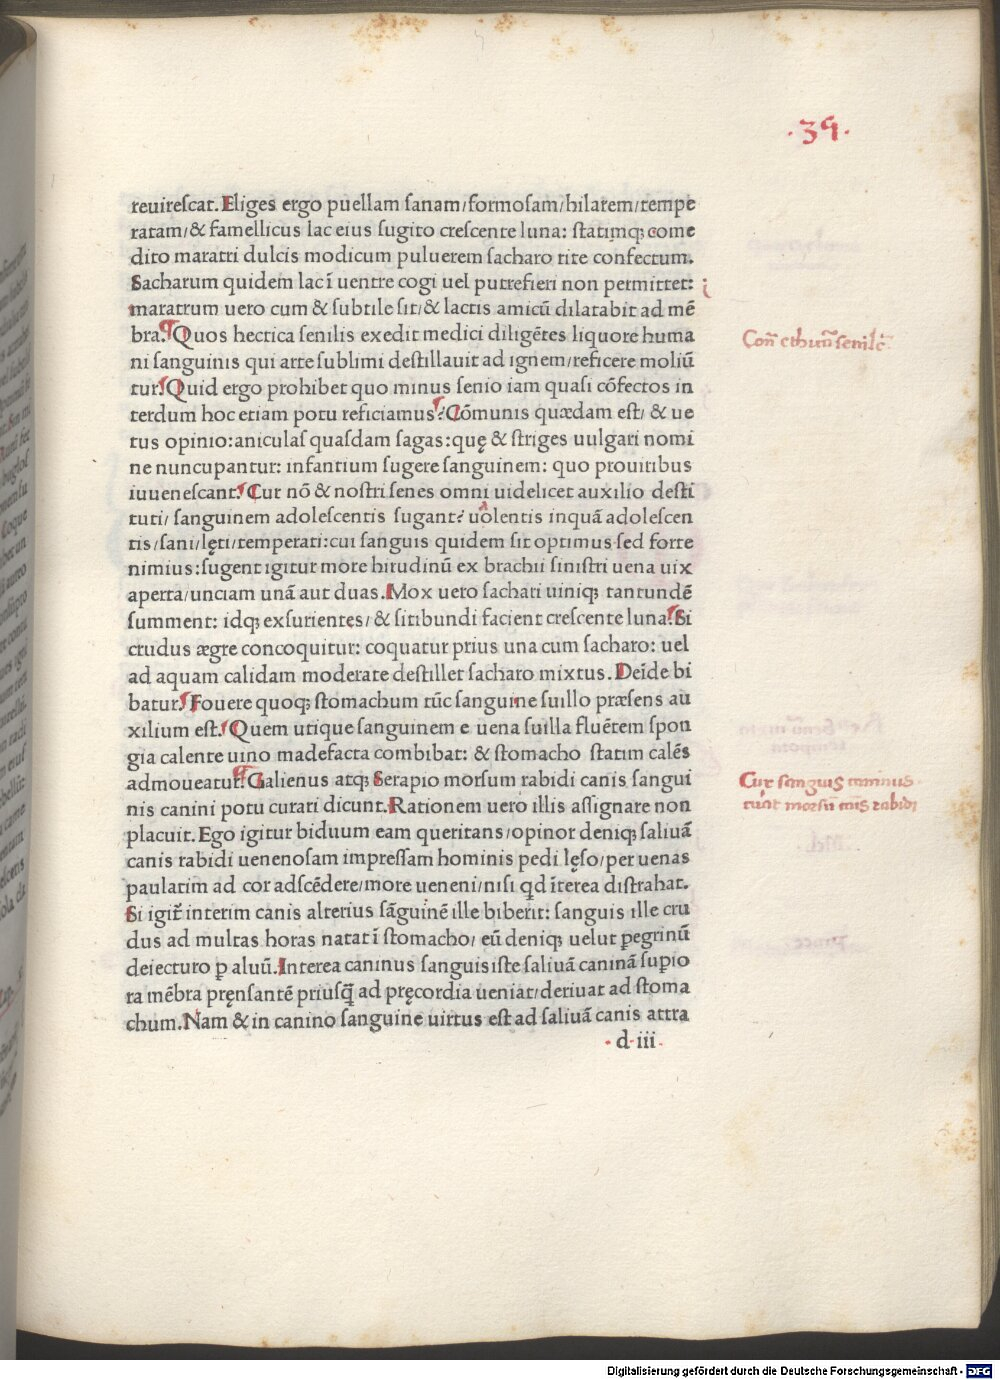 .39.
reuireſcat. Eliges ergo puellam ſanam/formoſam/hilarem/tempe
ratam/& famellicus lac eius ſugito creſcente luna: ſtatimq; come
dito maratri dulcis modicum puluerem ſacharo rite confectum.
Sacharum quidem lac ī uentre cogi uel putrefieri non permittet:
maratrum uero cum & ſubtile ſit/& lactis amicū dilatabit ad mē
bra. Quos hectica ſenilis exedit medici diligētes liquore huma
ni ſanguinis qui arte ſublimi deſtillauit ad ignem/reficere moliū
tur. Quid ergo prohibet quo minus ſenio iam quaſi cōfectos in
terdum hoc etiam potu reficiamus? Cōmunis quædam eſt/ & ue
tus opinio:aniculaſ quaſdam ſagas:quę & ſtriges uulgari nomi
ne nuncupantur: infantium ſugere ſanguinem: quo prouiribus
iuueneſcant. Cur nō & noſtri ſenes omni uidelicet auxilio deſti
tuti/ ſanguinem adoleſcentis ſugant? uolentis inquā adoleſcen
tis/ſani/lęti/temperati:cui ſanguis quidem ſit optimus ſed forte
nimius:ſugent igitur more hirudinū ex brachii ſiniſtri uena uix
aperta/unciam unā aut duas. Mox uero ſachari uiniq; tantundē
ſumment: idq; exſurientes/ & ſitibundi facient creſcente luna. Si
crudus ægre concoquitur: coquatur prius una cum ſacharo: uel
ad aquam calidam moderate deſtillet ſacharo mixtus. Deīde bi
batur. Fouere quoq; ſtomachum tūc ſanguine ſuillo præſens au
xilium eſt. Quem utique ſanguinem e uena ſuilla fluētem ſpon
gia calente uino madefacta combibat: & ſtomacho ſtatim calēs
admoueatur. Galienus atq; Serapio morſum rabidi canis ſangui
nis canini potu curati dicunt. Rationem uero illis aſſignare non
placuit. Ego igitur biduum eam queritans/opinor deniq; ſaliuā
canis rabidi uenenoſam impreſſam hominis pedi lęſo/per uenas
paulatim ad cor adſcēdere/more ueneni/niſi qd īterea diſtrahat.
Si igit̄ interim canis alterius ſāguinē ille biberit: ſanguis ille cru
dus ad multas horas natat ī ſtomacho/ eū deniq; uelut ꝑegrinū
deiecturo ꝑ aluū. Interea caninus ſanguis iſte ſaliuā caninā ſuꝑio
ra mēbra pręnſantē priuſq̄ ad pręcordia ueniat/deriuat ad ſtoma
chum. Nam & in canino ſanguine uirtus eſt ad ſaliuā canis attra
d iii
Cur sanguis caninus